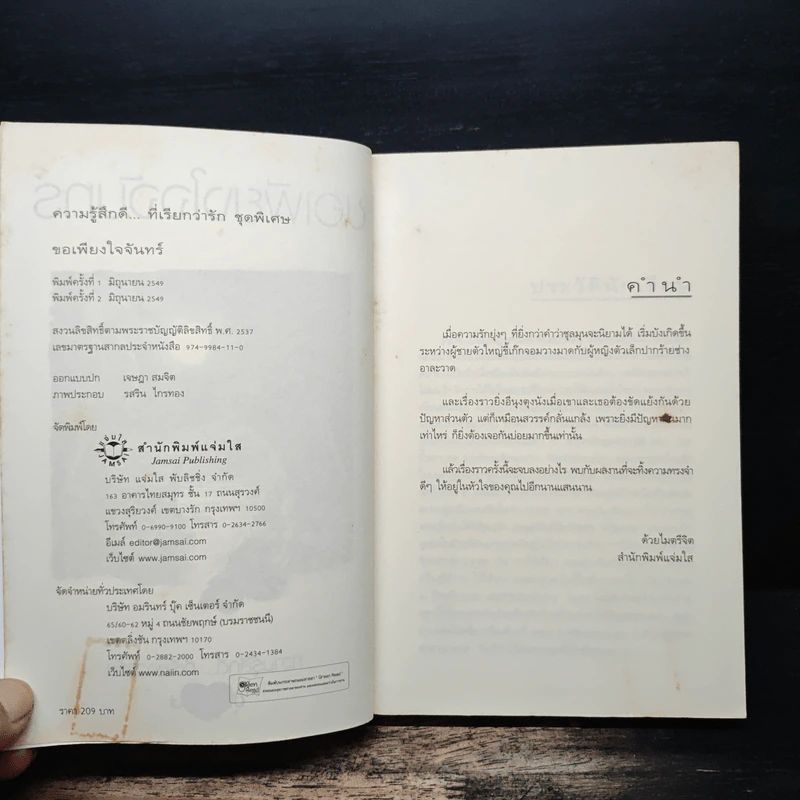 ความรู้สึกดี... ที่เรียกว่ารัก ชุดพิเศษ
ขอเพียงใจจันทร์
พิมพ์ครั้งที่ 1 มิถุนายน 2549
พิมพ์ครั้งที่ 2 มิถุนายน 2549
สงวนลิขสิทธิ์ตามพระราชบัญญัติลิขสิทธิ์ พ.ศ. 2537
เลขมาตรฐานสากลประจำหนังสือ 974-9984-11-0
ออกแบบปก เจษฎา สมจิต
ภาพประกอบ รสริน ไกรทอง
จัดพิมพ์โดย
แจ่มใส
JAMSAI
สำนักพิมพ์แจ่มใส
Jamsai Publishing
บริษัท แจ่มใส พับลิชชิ่ง จำกัด
163 อาคารไทยสมุทร ชั้น 17 ถนนสุรวงศ์
แขวงสุริยวงศ์ เขตบางรัก กรุงเทพฯ 10500
โทรศัพท์ 0-6990-9100 โทรสาร 0-2634-2766
อีเมล์ editor@jamsai.com
เว็บไซต์ www.jamsai.com
จัดจำหน่ายทั่วประเทศโดย
บริษัท อมรินทร์ บุ๊ค เซ็นเตอร์ จำกัด
65/60-62 หมู่ 4 ถนนชัยพฤกษ์ (บรมราชชนนี)
เขตตลิ่งชัน กรุงเทพฯ 10170
โทรศัพท์ 0-2882-2000 โทรสาร 0-2434-1384
เว็บไซต์ www.naiin.com
ราคา 209 บาท
คำนำ
เมื่อความรักยุ่งๆ ที่ยิ่งกว่าคำว่าชุลมุนจะนิยามได้ เริ่มบังเกิดขึ้น
ระหว่างผู้ชายตัวใหญ่ขี้เก๊กจอมวางมาดกับผู้หญิงตัวเล็กปากร้ายช่าง
อาละวาด
และเรื่องราวยิ่งอีนุงตุงนังเมื่อเขาและเธอต้องขัดแย้งกันด้วย
ปัญหาส่วนตัว แต่ก็เหมือนสวรรค์กลั่นแกล้ง เพราะยิ่งมีปัญหามาก
เท่าไหร่ ก็ยิ่งต้องเจอกันบ่อยมากขึ้นเท่านั้น
แล้วเรื่องราวครั้งนี้จะจบลงอย่างไร พบกับผลงานที่จะทิ้งความทรงจำ
ดีๆ ให้อยู่ในหัวใจของคุณไปอีกนานแสนนาน
ด้วยไมตรีจิต
สำนักพิมพ์แจ่มใส